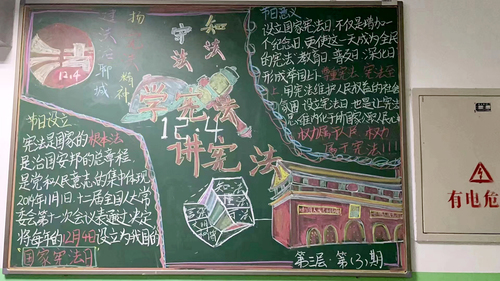 12.4
扬
精神
知法
守法
学宪法
12.4
讲宪法
节日设立
宪法是国家的根本法
是治国安邦的总章程
是党和人民意志的集中体现
2014年11月1日十二届全国人大常
委会第十一次会议表决通过决定
将每年的12月4日设立为我国的
国家宪法日
节日意义
设立国家宪法日,不仅是增加
一个纪念日,更使这一天成为全民
的宪法"教育日、普及日、深化日"
形成举国上下尊重宪法、宪法至
上、用宪法维护人民权益的社会
氛围 设立宪法日也是让宪法
权力属于人民,权力
属于宪法!!!
第三层·第(3)期
有电危